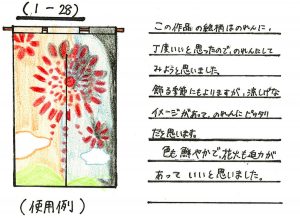 (1-28)
(使用例)
この作品の絵柄はのれんに、
丁度いいと思ったので、のれんにして
みようと思いました。
飾る季節にもよりますが、涼しげな
イメージがあって、のれんにピッタリ
だと思います。
色も鮮やかで、花火も迫力が
あっていいと思いました。